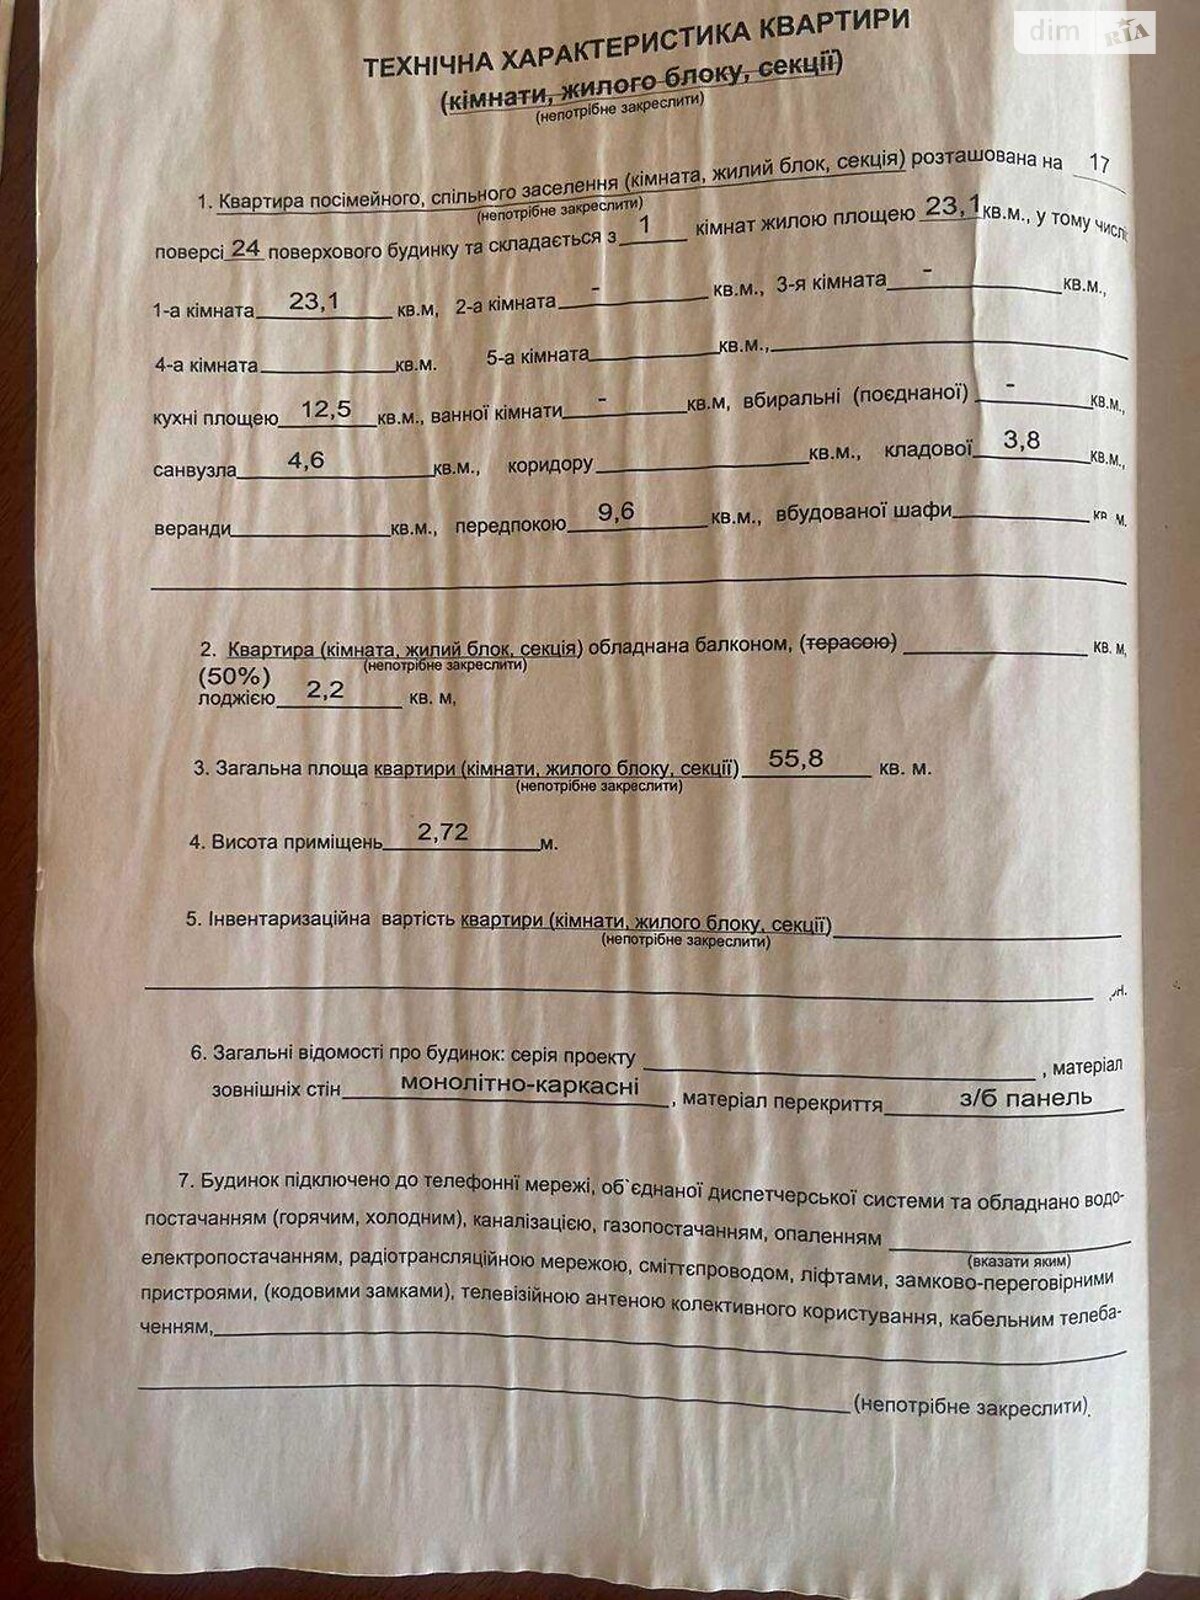 dim RIA
ТЕХНІЧНА ХАРАКТЕРИСТИКА КВАРТИРИ
(кімнати, жилого блоку, секції)
(непотрібне закреслити)
1. Квартира посімейного, спільного заселення (кімната, жилий блок, секція) розташована на 17
(непотрібне закреслити)
поверсі 24 поверхового будинку та складається з 1 кімнат жилою площею 23,1 кв.м., у тому числі:
1-а кімната 23,1 кв.м, 2-а кімната - кв.м., 3-я кімната - кв.м.,
4-а кімната кв.м. 5-а кімната кв.м.,
кухні площею 12,5 кв.м., ванної кімнати - кв.м, вбиральні (поєднаної) - кв.м.,
санвузла 4,6 кв.м., коридору кв.м., кладової 3,8 кв.м.,
веранди кв.м., передпокою 9,6 кв.м., вбудованої шафи кв.м.
2. Квартира (кімната, жилий блок, секція) обладнана балконом, (терасою) кв. м,
(непотрібне закреслити)
(50%)
лоджією 2,2 кв. м,
3. Загальна площа квартири (кімнати, жилого блоку, секції) 55,8 кв. м.
(непотрібне закреслити)
4. Висота приміщень 2,72 м.
5. Інвентаризаційна вартість квартири (кімнати, жилого блоку, секції)
(непотрібне закреслити)
6. Загальні відомості про будинок: серія проекту , матеріал
зовнішніх стін монолітно-каркасні , матеріал перекриття з/б панель
7. Будинок підключено до телефонні мережі, об`єднаної диспетчерської системи та обладнано водо-
постачанням (горячим, холодним), каналізацією, газопостачанням, опаленням
(вказати яким)
електропостачанням, радіотрансляційною мережою, сміттєпроводом, ліфтами, замково-переговірними
пристроями, (кодовими замками), телевізійною антеною колективного користування, кабельним телеба-
ченням,
(непотрібне закреслити).